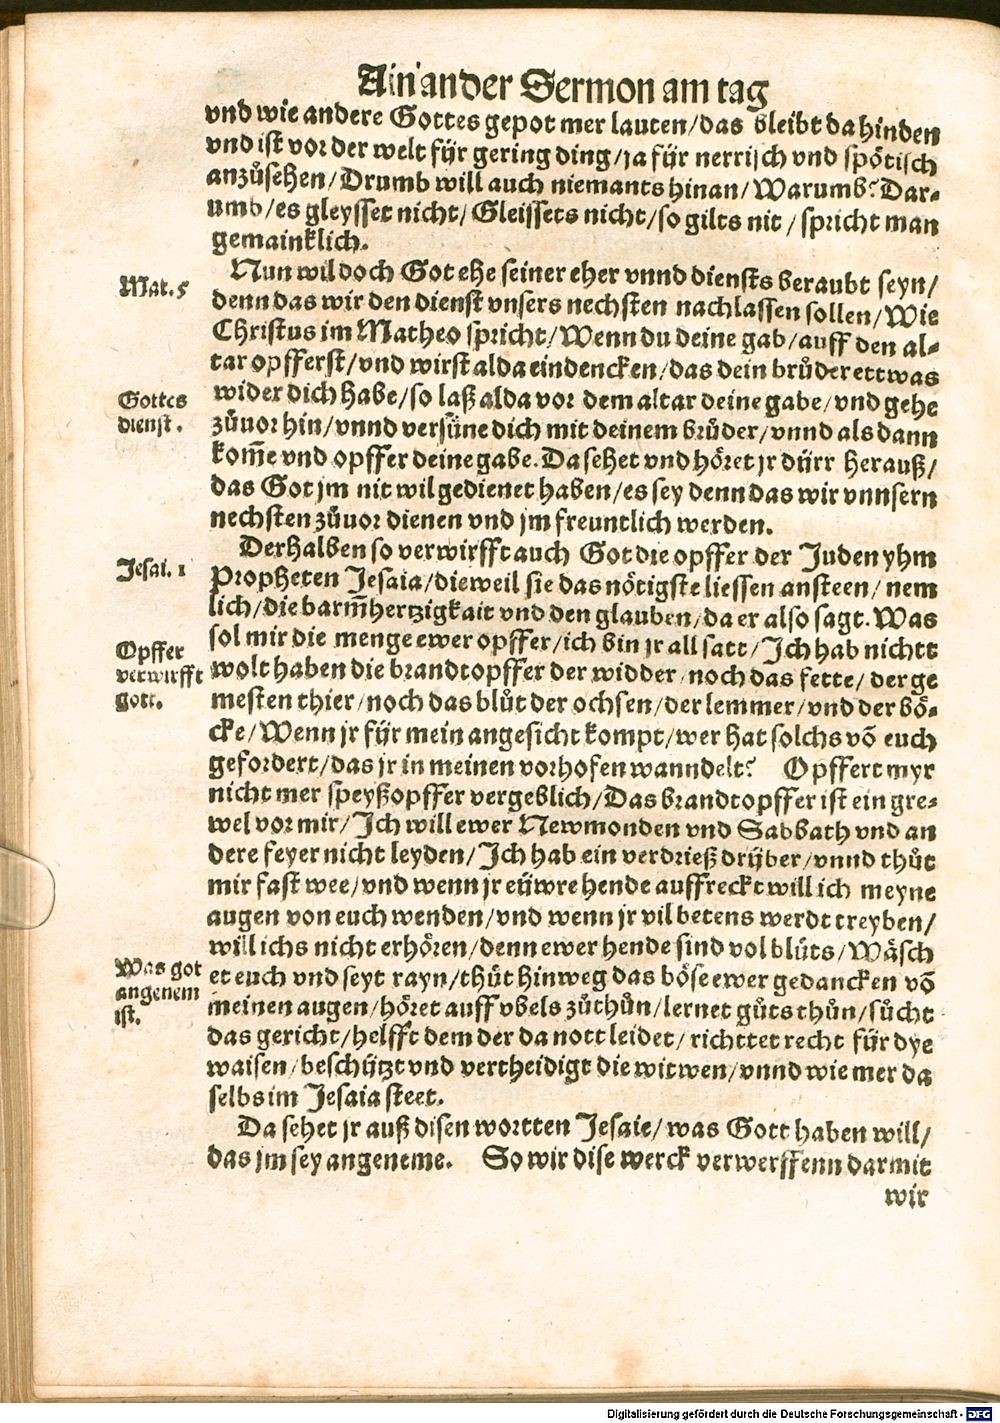 Ain ander Sermon am tag
vnd wie andere Gottes gepot mer lauten/das bleibt dahinden
vnd ist vor der welt für gering ding/ja für nerrisch vnd spötisch
anzůsehen/Drumb will auch niemants hinan/Warumb? Dar-
umb/es gleysset nicht/Gleissets nicht/so gilts nit/spricht man
gemainklich.
Nun wil doch Got ehe seiner eher vnnd diensts beraubt seyn/
Mat. 5
denn das wir den dienst vnsers nechsten nachlassen sollen/Wie
Christus im Matheo spricht/Wenn du deine gab/auff den al-
tar opfferst/vnd wirst alda eindencken/das dein brůder ettwas
wider dich habe/so laß alda vor dem altar deine gabe/vnd gehe
Gottes
dienst.
zůuor hin/vnnd versüne dich mit deinem brůder/vnnd als dann
kom̃e vnd opffer deine gabe. Da sehet vnd höret jr dürr herauß/
das Got jm nit wil gedienet haben/es sey denn das wir vnnsern
nechsten zůuor dienen vnd jm freuntlich werden.
Derhalben so verwirfft auch Got die opffer der Juden yhm
Jesai. 1
Propheten Jesaia/dieweil sie das nötigste liessen ansteen/nem
lich/die barm̃hertzigkait vnd den glauben/da er also sagt. Was
sol mir die menge ewer opffer/ich bin jr all satt/Ich hab nichtt
Opffer
verwirfft
gott.
wolt haben die brandtopffer der widder/noch das fette/der ge
mesten thier/noch das blůt der ochsen/der lemmer/vnd der bö-
cke/Wenn jr für mein angesicht kompt/wer hat solchs võ euch
gefordert/das jr in meinen vorhofen wanndelt? Opffert myr
nicht mer speyßopffer vergeblich/Das brandtopffer ist ein gre-
wel vor mir/Ich will ewer Newmonden vnd Sabbath vnd an
dere feyer nicht leyden/Ich hab ein verdrieß drüber/vnnd thůt
mir fast wee/vnd wenn jr eüwre hende auffreckt will ich meyne
augen von euch wenden/vnd wenn jr vil betens werdt treyben/
will ichs nicht erhören/denn ewer hende sind vol blůts/Wäsch
Was got
angenem
ist.
et euch vnd seyt rayn/thůt hinweg das böse ewer gedancken võ
meinen augen/höret auff vbels zůthůn/lernet gůts thůn/sůcht
das gericht/helfft dem der da nott leidet/richttet recht für dye
waisen/beschützt vnd vertheidigt die witwen/vnnd wie mer da
selbs im Jesaia steet.
Da sehet jr auß disen wortten Jesaie/was Gott haben will/
das jm sey angeneme. So wir dise werck verwerffenn darmit
wir
Digitalisierung gefördert durch die Deutsche Forschungsgemeinschaft - DFG